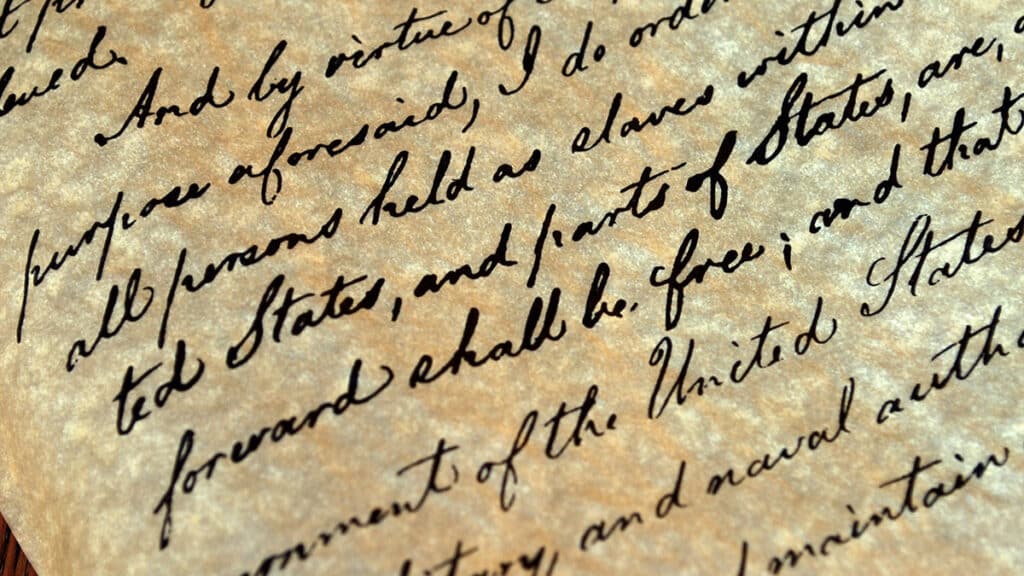 And by virtue of
purpose aforesaid, I do
all persons held as slaves within
ted States, and parts of States, are,
forward shall be free; and that
ernment of the United States
and naval
maintain